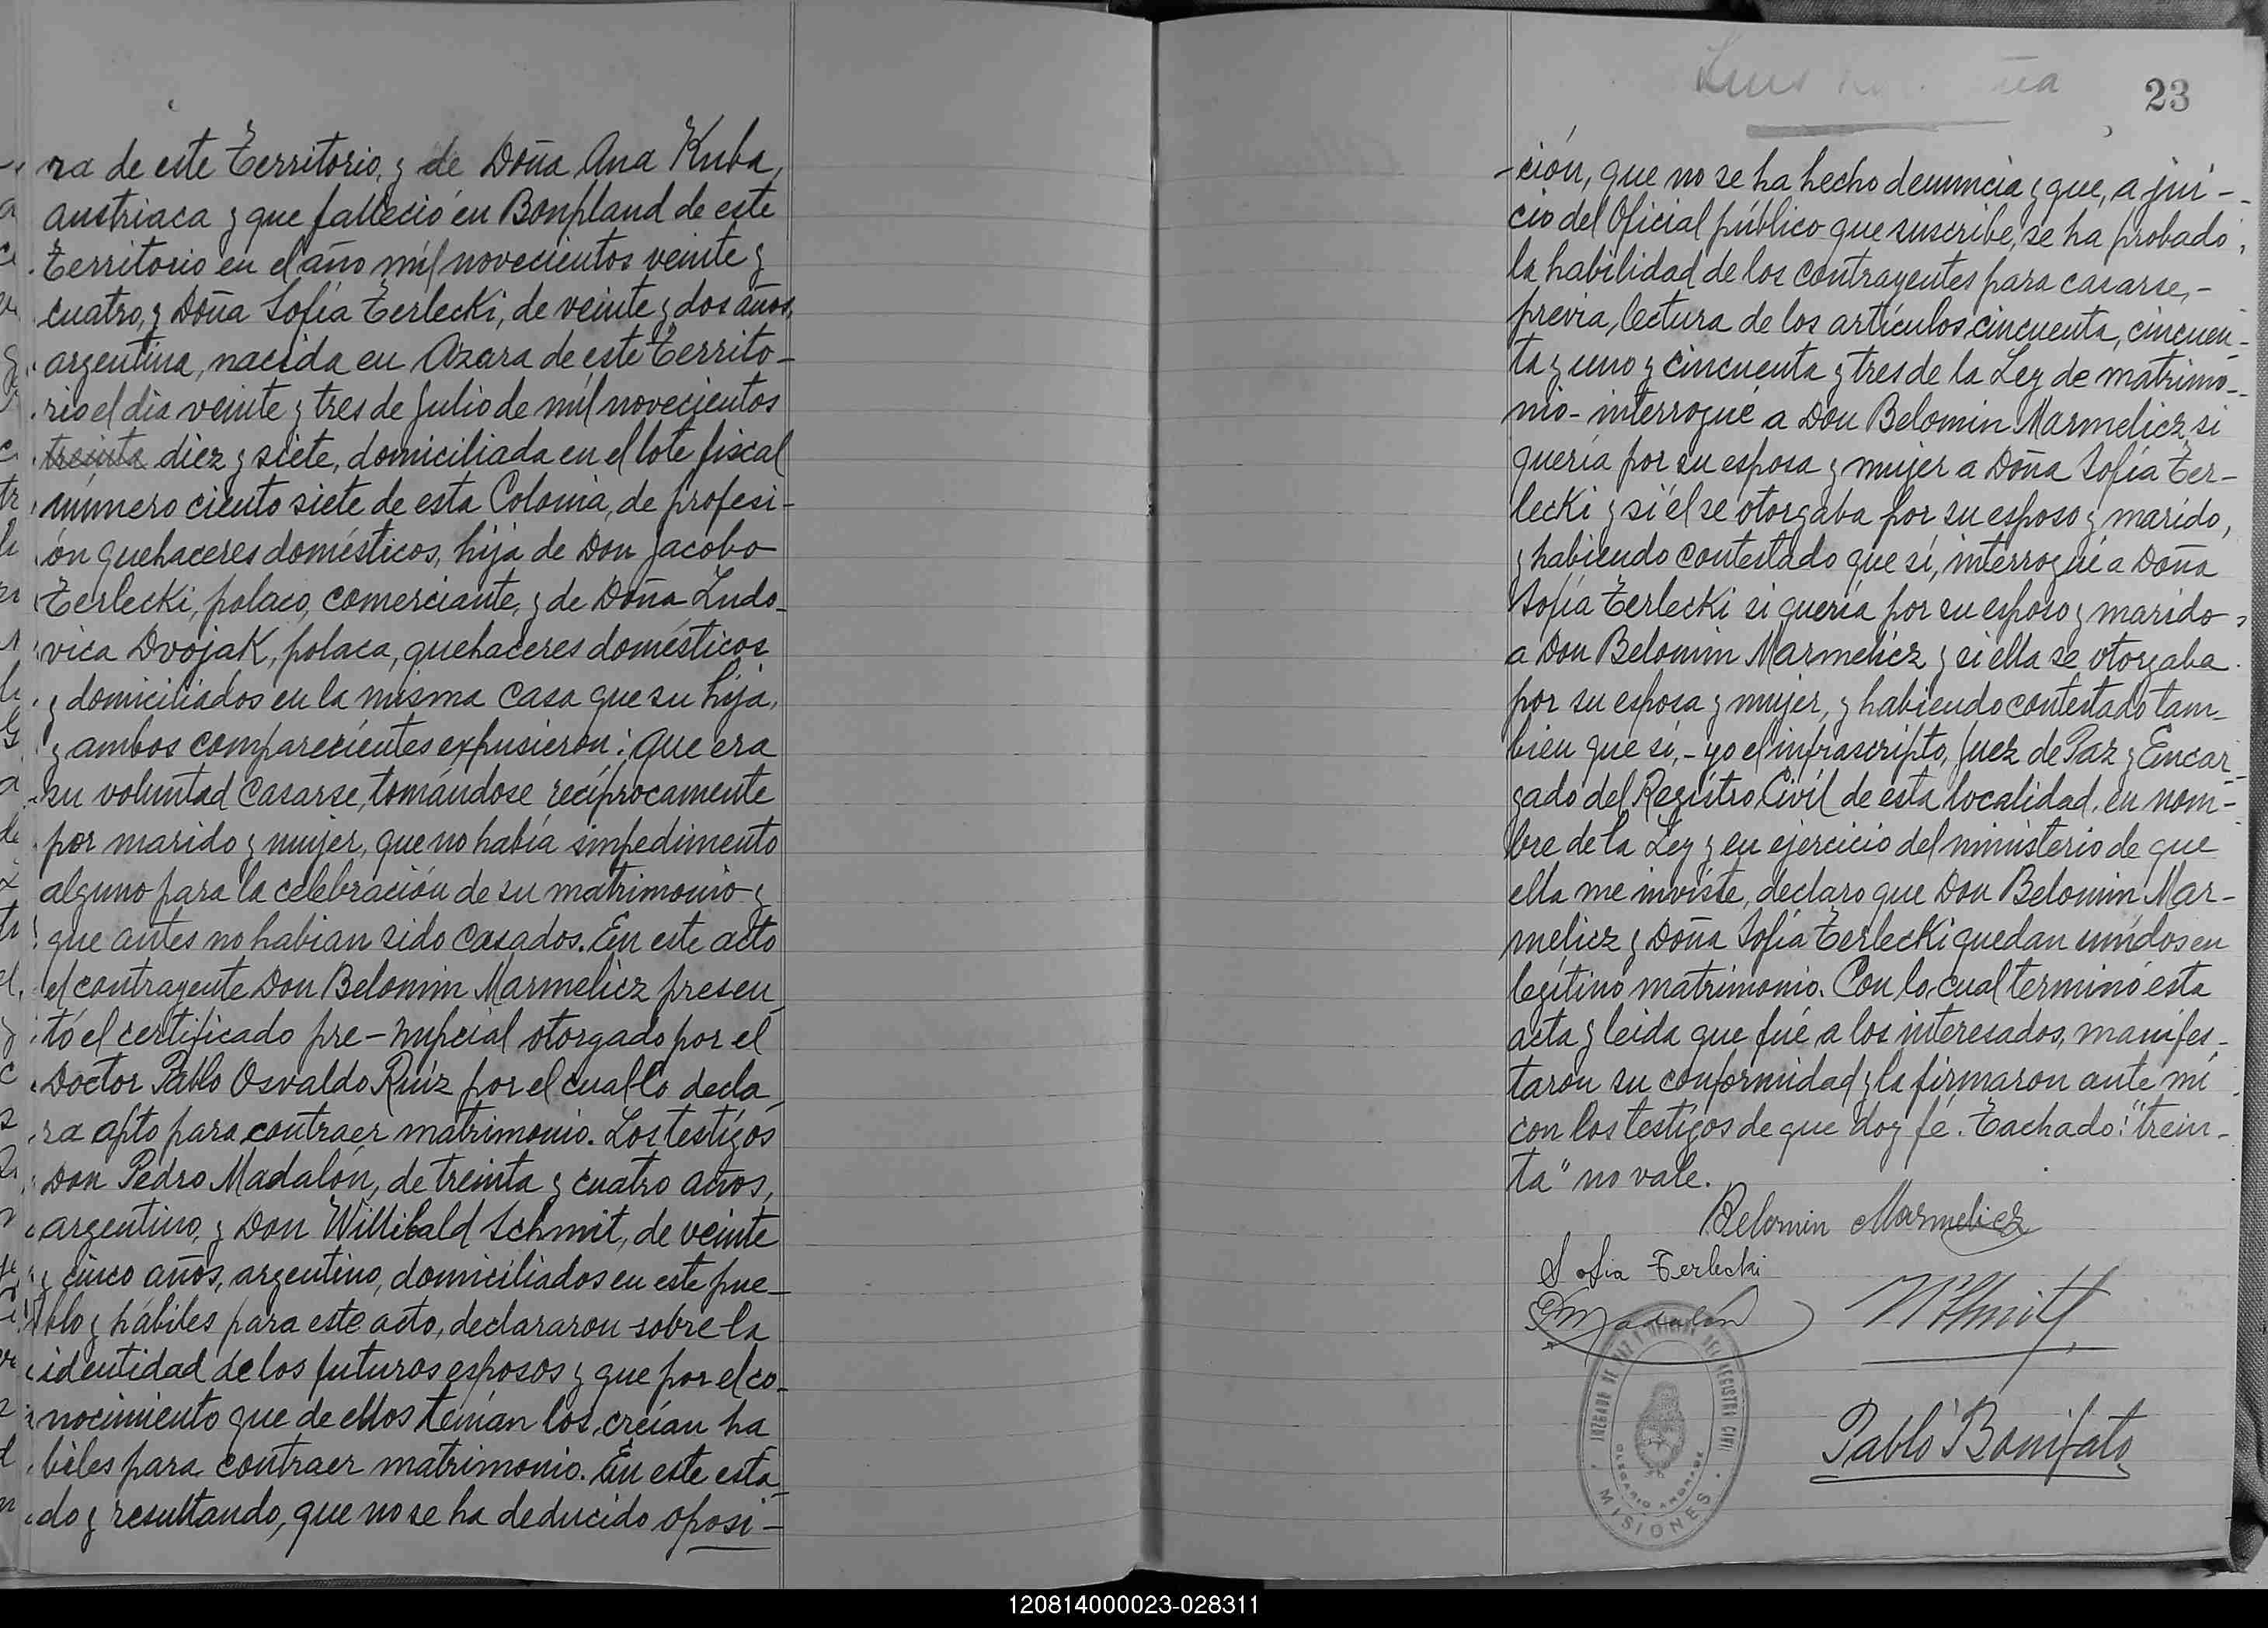 ra de este Territorio, y de Doña Ana Kuba,
austriaca y que falleció en Bonpland de este
Territorio en el año mil novecientos veinte y
cuatro, y Doña Sofía Terlecki, de veinte y dos años,
argentina, nacida en Azara de este Territo-
rio el dia veinte y tres de Julio de mil novecientos
treinta diez y siete, domiciliada en el lote fiscal
número ciento siete de esta Colonia, de profesi-
ón quehaceres domésticos, hija de Don Jacobo
Terlecki, polaco, comerciante, y de Doña Ludo-
vica Dvojak, polaca, quehaceres domésticos
y domiciliados en la misma casa que su hija,
y ambos comparecientes expusieron: Que era
su voluntad casarse, tomándose recíprocamente
por marido y mujer, que no había impedimento
alguno para la celebración de su matrimonio y
que antes no habian sido casados. En este acto
el contrayente Don Belomin Marmelicz presen-
tó el certificado pre-nupcial otorgado por el
Doctor Pablo Osvaldo Ruíz por el cual lo decla-
ra apto para contraer matrimonio. Los testigos
Don Pedro Madalón, de treinta y cuatro años,
argentino, y Don Willibald Schmit, de veinte
y cinco años, argentino, domiciliados en este pue-
blo y hábiles para este acto, declararon sobre la
identidad de los futuros esposos y que por el co-
nocimiento que de ellos tenían los creían ha
biles para contraer matrimonio. En este esta-
do y resultando, que no se ha deducido oposi-
Luis
23
-ción, que no se ha hecho denuncia y que, a jui-
cio del Oficial público que suscribe, se ha probado
la habilidad de los contrayentes para casarse,-
previa, lectura de los artículos cincuenta, cincuen-
ta y uno y cincuenta y tres de la Ley de matrimo-
nio- interrogué a Don Belomin Marmelicz si
quería por su esposa y mujer a Doña Sofía Ter-
lecki y si él se otorgaba por su esposo y marido,
y habiendo contestado que sí, interrogué a Doña
Sofía Terlecki si quería por su esposo y marido
a Don Belomin Marmelicz y si ella se otorgaba
por su esposa y mujer, y habiendo contestado tam-
bien que sí,- yo el infrascripto, Juez de Paz y Encar-
gado del Registro Civil de esta localidad, en nom-
bre de la Ley y en ejercicio del ministerio de que
ella me inviste, declaro que Don Belomin Mar-
melicz y Doña Sofía Terlecki quedan unídos en
legítimo matrimonio. Con lo cual terminó esta
acta y leida que fué a los interesados, manifes-
taron su conformidad y la firmaron ante mí
con los testigos de que doy fé. Tachado: "trein-
ta" no vale.
Belomin Marmelicz
Sofia Terlecki
PMadalón
WSchmit
JUZGADO DE PAZ Y OFICINA DEL REGISTRO CIVIL
OLEGARIO ANDRADE
MISIONES
Pablo Bonifato
120814000023-028311